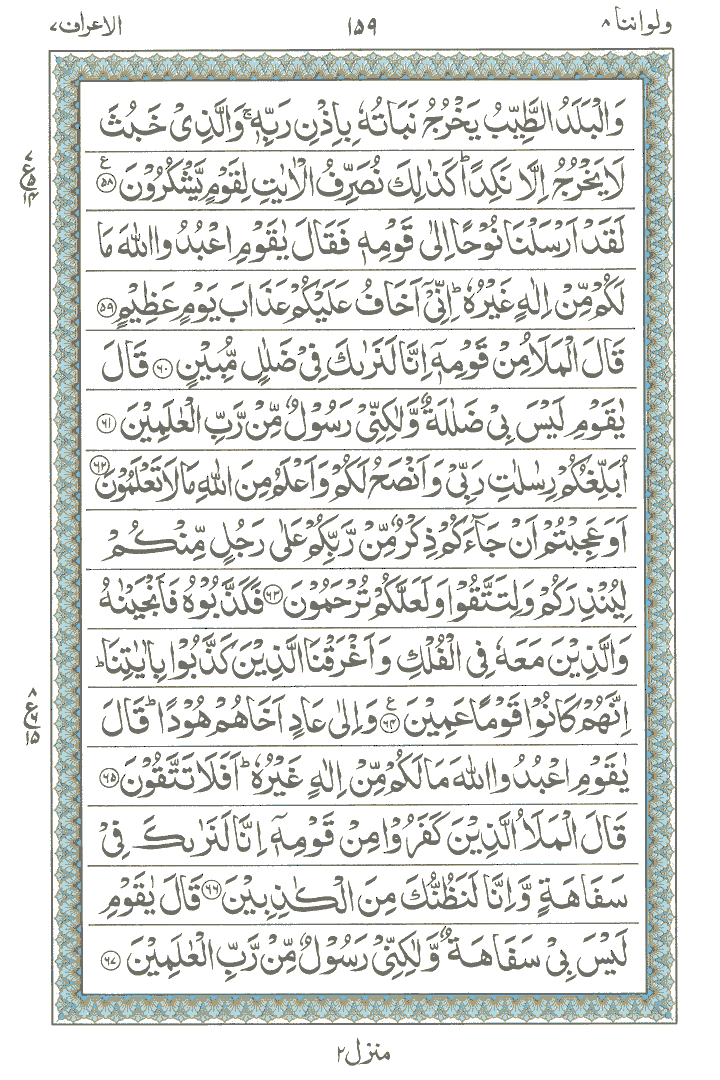 ولواننا ۸ ۱۵۹ الاعراف ۷
وَالْبَلَدُ الطَّيِّبُ يَخْرُجُ نَبَاتُهٗ بِاِذْنِ رَبِّهٖ ۚ وَالَّذِیْ خَبُثَ
لَا یَخْرُجُ اِلَّا نَكِدًا ؕ كَذٰلِكَ نُصَرِّفُ الْاٰیٰتِ لِقَوْمٍ یَّشْكُرُوْنَ ﴿۵۸﴾ ع
۷ ع ۵ ۱۴
لَقَدْ اَرْسَلْنَا نُوْحًا اِلٰی قَوْمِهٖ فَقَالَ یٰقَوْمِ اعْبُدُوا اللّٰهَ مَا
لَكُمْ مِّنْ اِلٰهٍ غَیْرُهٗ ؕ اِنِّیْۤ اَخَافُ عَلَیْكُمْ عَذَابَ یَوْمٍ عَظِیْمٍ ﴿۵۹﴾
قَالَ الْمَلَاُ مِنْ قَوْمِهٖۤ اِنَّا لَنَرٰىكَ فِیْ ضَلٰلٍ مُّبِیْنٍ ﴿۶۰﴾ قَالَ
یٰقَوْمِ لَیْسَ بِیْ ضَلٰلَةٌ وَّلٰكِنِّیْ رَسُوْلٌ مِّنْ رَّبِّ الْعٰلَمِیْنَ ﴿۶۱﴾
اُبَلِّغُكُمْ رِسٰلٰتِ رَبِّیْ وَاَنْصَحُ لَكُمْ وَاَعْلَمُ مِنَ اللّٰهِ مَا لَا تَعْلَمُوْنَ ﴿۶۲﴾
اَوَعَجِبْتُمْ اَنْ جَآءَكُمْ ذِكْرٌ مِّنْ رَّبِّكُمْ عَلٰی رَجُلٍ مِّنْكُمْ
لِیُنْذِرَكُمْ وَلِتَتَّقُوْا وَلَعَلَّكُمْ تُرْحَمُوْنَ ﴿۶۳﴾ فَكَذَّبُوْهُ فَاَنْجَیْنٰهُ
وَالَّذِیْنَ مَعَهٗ فِی الْفُلْكِ وَاَغْرَقْنَا الَّذِیْنَ كَذَّبُوْا بِاٰیٰتِنَا ؕ
اِنَّهُمْ كَانُوْا قَوْمًا عَمِیْنَ ﴿۶۴﴾ ع وَاِلٰی عَادٍ اَخَاهُمْ هُوْدًا ؕ قَالَ
۸ ع ۶ ۱۵
یٰقَوْمِ اعْبُدُوا اللّٰهَ مَا لَكُمْ مِّنْ اِلٰهٍ غَیْرُهٗ ؕ اَفَلَا تَتَّقُوْنَ ﴿۶۵﴾
قَالَ الْمَلَاُ الَّذِیْنَ كَفَرُوْا مِنْ قَوْمِهٖۤ اِنَّا لَنَرٰىكَ فِیْ
سَفَاهَةٍ وَّاِنَّا لَنَظُنُّكَ مِنَ الْكٰذِبِیْنَ ﴿۶۶﴾ قَالَ یٰقَوْمِ
لَیْسَ بِیْ سَفَاهَةٌ وَّلٰكِنِّیْ رَسُوْلٌ مِّنْ رَّبِّ الْعٰلَمِیْنَ ﴿۶۷﴾
منزل ۲